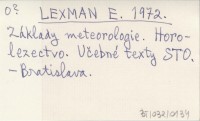 0?
LEXMAN E. 1972.
Základy meteorologie. Horo-
lezectvo. Učebné texty STO.
– Bratislava.